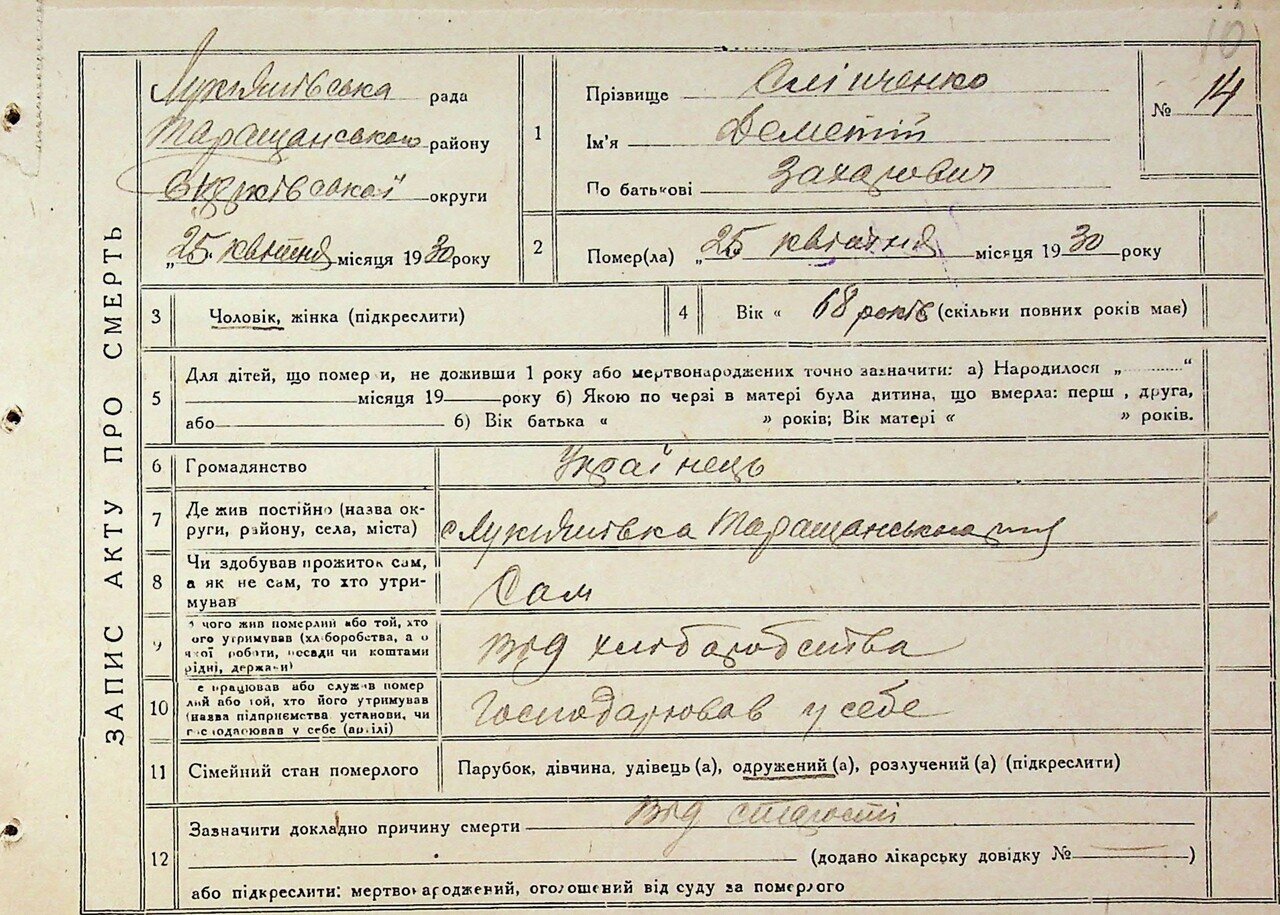 10
ЗАПИС АКТУ ПРО СМЕРТЬ
Лукіянівська рада
Таращанського району
округи
„25 квітня місяця 1930 року
1
Прізвище Сліпченко
Ім'я Деметій
По батькові Захарович
№ 14
2
Помер(ла) „25 квітня місяця 1930 року
3 Чоловік, жінка (підкреслити)
4 Вік « 68 років (скільки повних років має)
5
Для дітей, що помер и, не доживши 1 року або мертвонароджених точно зазначити: а) Народилося „ “
місяця 19 року б) Якою по черзі в матері була дитина, що вмерла: перш , друга,
або б) Вік батька « » років; Вік матері « » років.
6 Громадянство Українець
7
Де жив постійно (назва ок-
руги, району, села, міста)
с Лукіянівка Таращанського
8
Чи здобував прожиток сам,
а як не сам, то хто утри-
мував
Сам
9
чого жив померлий або той, хто
ого утримував (хліборобства, а о
якої роботи, посади чи коштами
рідні, держави)
Від хліборобства
10
е працював або служив помер
лий або той, хто його утримував
(назва підприємства установи, чи
господарював у себе (вдома)
Господарював у себе
11 Сімейний стан померлого Парубок, дівчина, удівець (а), одружений (а), розлучений (а) (підкреслити)
12
Зазначити докладно причину смерти Від старости
(додано лікарську довідку № )
або підкреслити: мертвонароджений, оголошений від суду за померлого